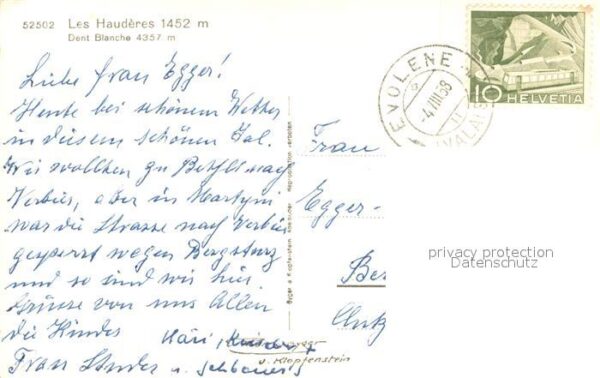 52502 Les Haudères 1452 m
Dent Blanche 4357 m
Liebe Frau Egger!
Heute bei schönem Wetter
in diesem schönen Tal.
Wir wollten zu nach
Verbier, aber in Martyni
war die Strasse nach Verbier
gesperrt wegen Bergsturz
und so sind wir hier.
Grüsse von uns Allen
die Kinder
Frau Studer u.
v. Klopfenstein
Gyger & Klopfenstein Adelboden Reproduction verboten
EVOLENE
(VALAIS)
4.VIII.58
10 HELVETIA
Frau
Egger-
Ber
privacy protection
Datenschutz